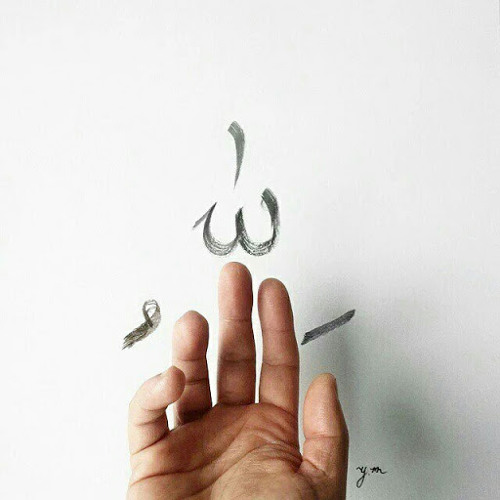 اَللّٰهُ
y.m